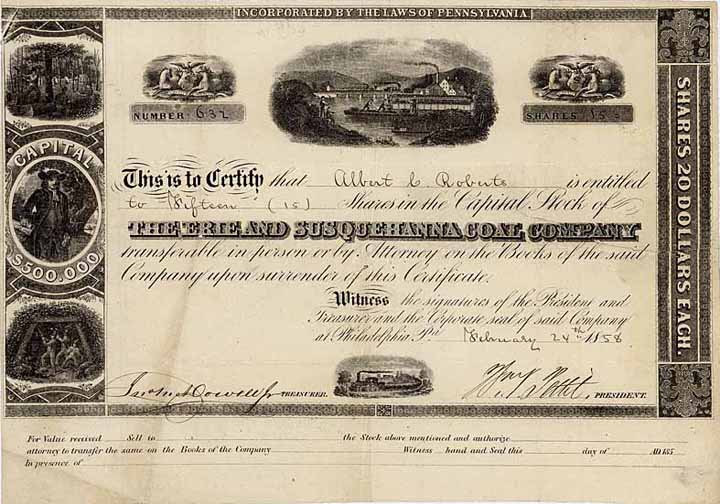 INCORPORATED BY THE LAWS OF PENNSYLVANIA
NUMBER 632
SHARES 15
CAPITAL
$500,000
SHARES 20 DOLLARS EACH.
This is to Certify that Albert C. Roberts is entitled
to Fifteen (15) Shares in the Capital Stock of
THE ERIE AND SUSQUEHANNA COAL COMPANY
transferable in person or by Attorney on the Books of the said
Company upon surrender of this Certificate.
Witness the signatures of the President and
Treasurer and the Corporate seal of said Company
at Philadelphia Pa February 24th 1858
TREASURER.
Wm Pettit PRESIDENT.
For Value received Sell to the Stock above mentioned and authorize
attorney to transfer the same on the Books of the Company Witness hand and Seal this day of AD 185
In presence of